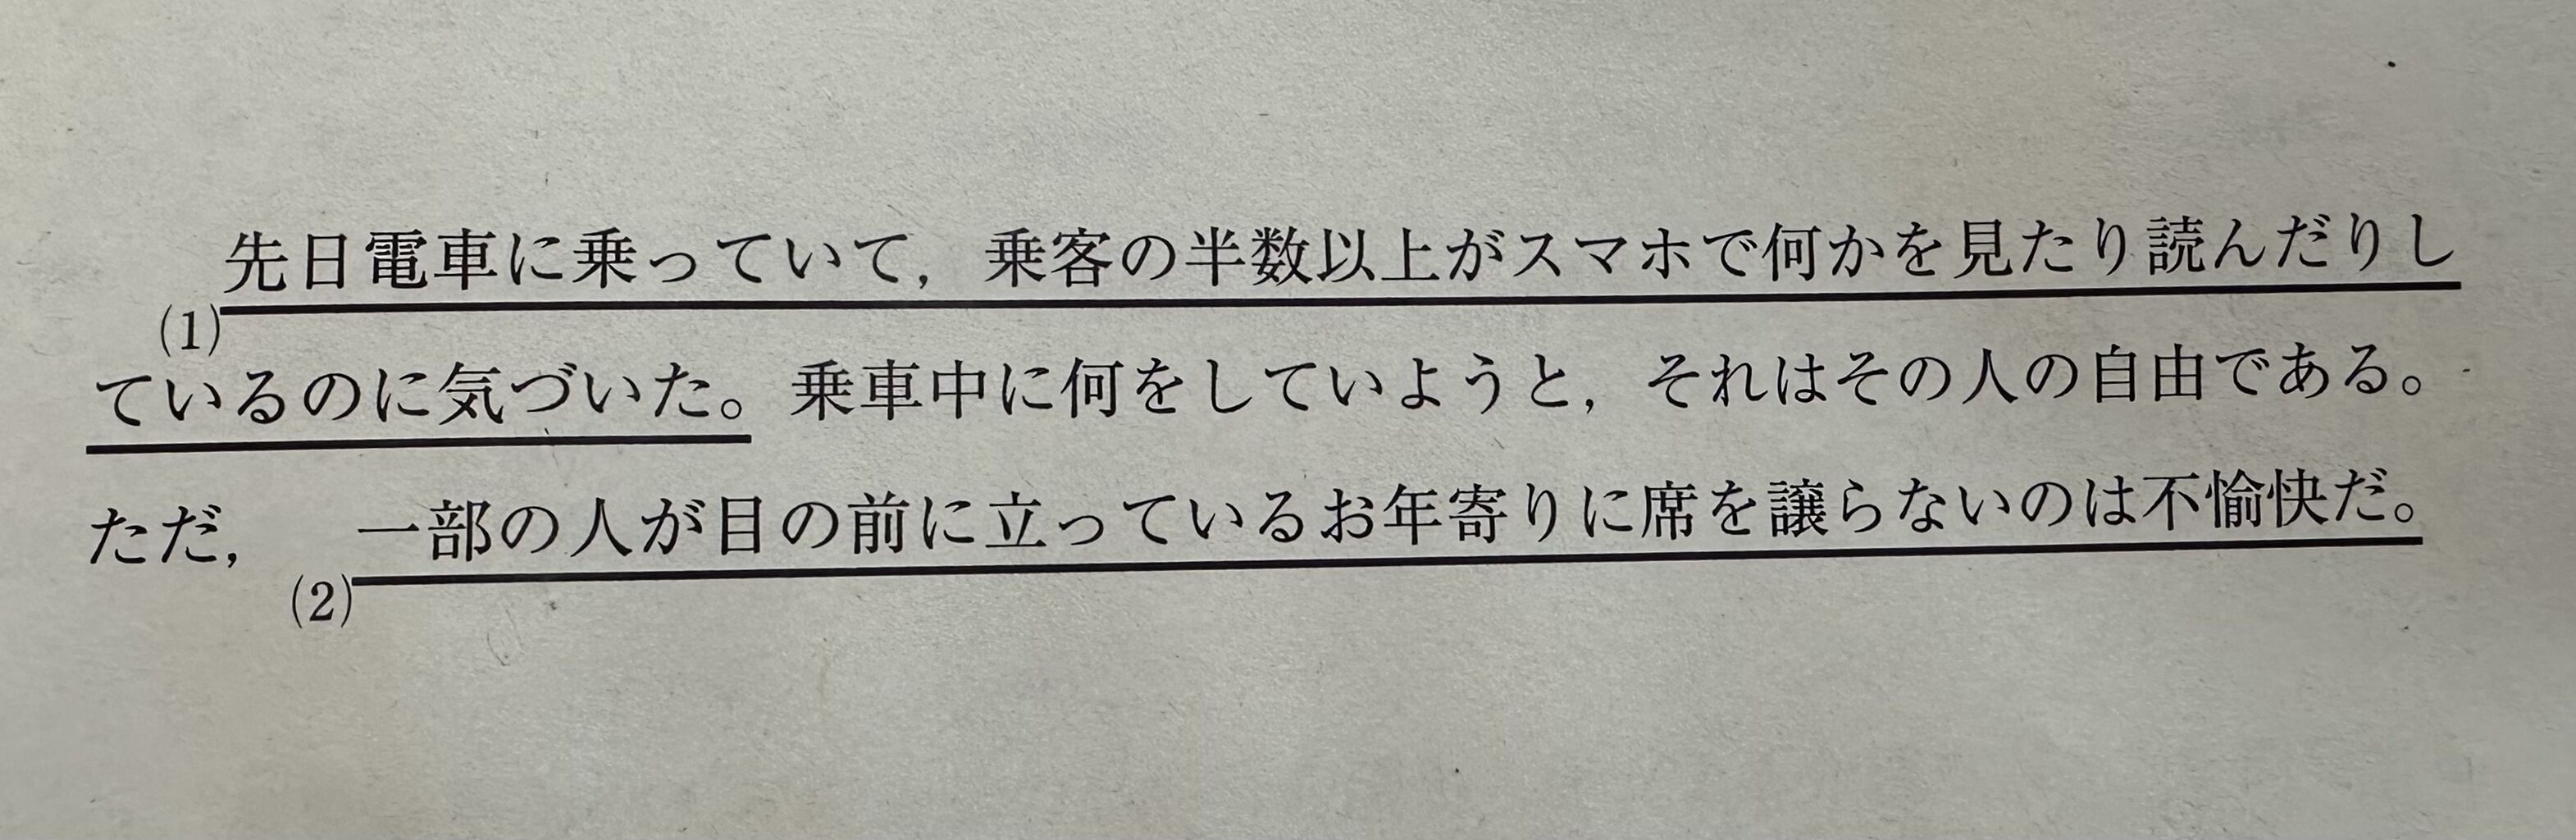 先日電車に乗っていて，乗客の半数以上がスマホで何かを見たり読んだりし
(1)
ているのに気づいた。乗車中に何をしていようと，それはその人の自由である。
ただ，一部の人が目の前に立っているお年寄りに席を譲らないのは不愉快だ。
(2)